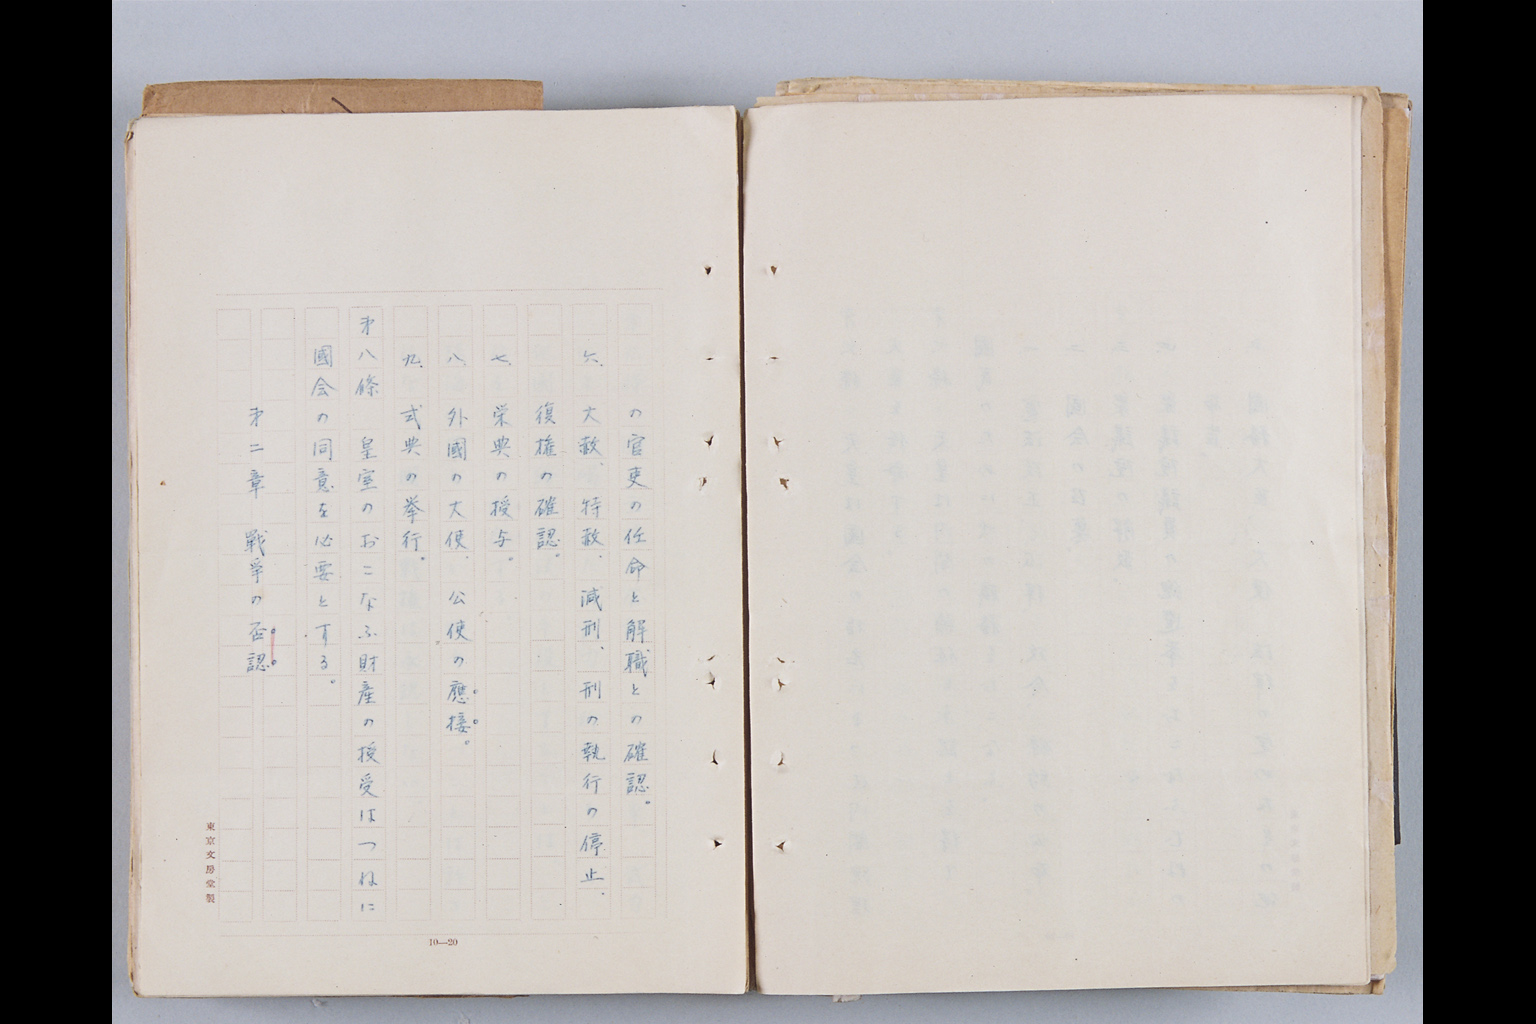 の官吏の任命と解職との確認。
六、大赦、特赦、減刑、刑の執行の停止、
復権の確認。
七、栄典の授与。
八、外國の大使、公使の應接。
九、式典の挙行。
才八條　皇室のおこなふ財産の授受はつねに
國会の同意を必要とする。
才二章　戰爭の否認
東京文房堂製
10—20